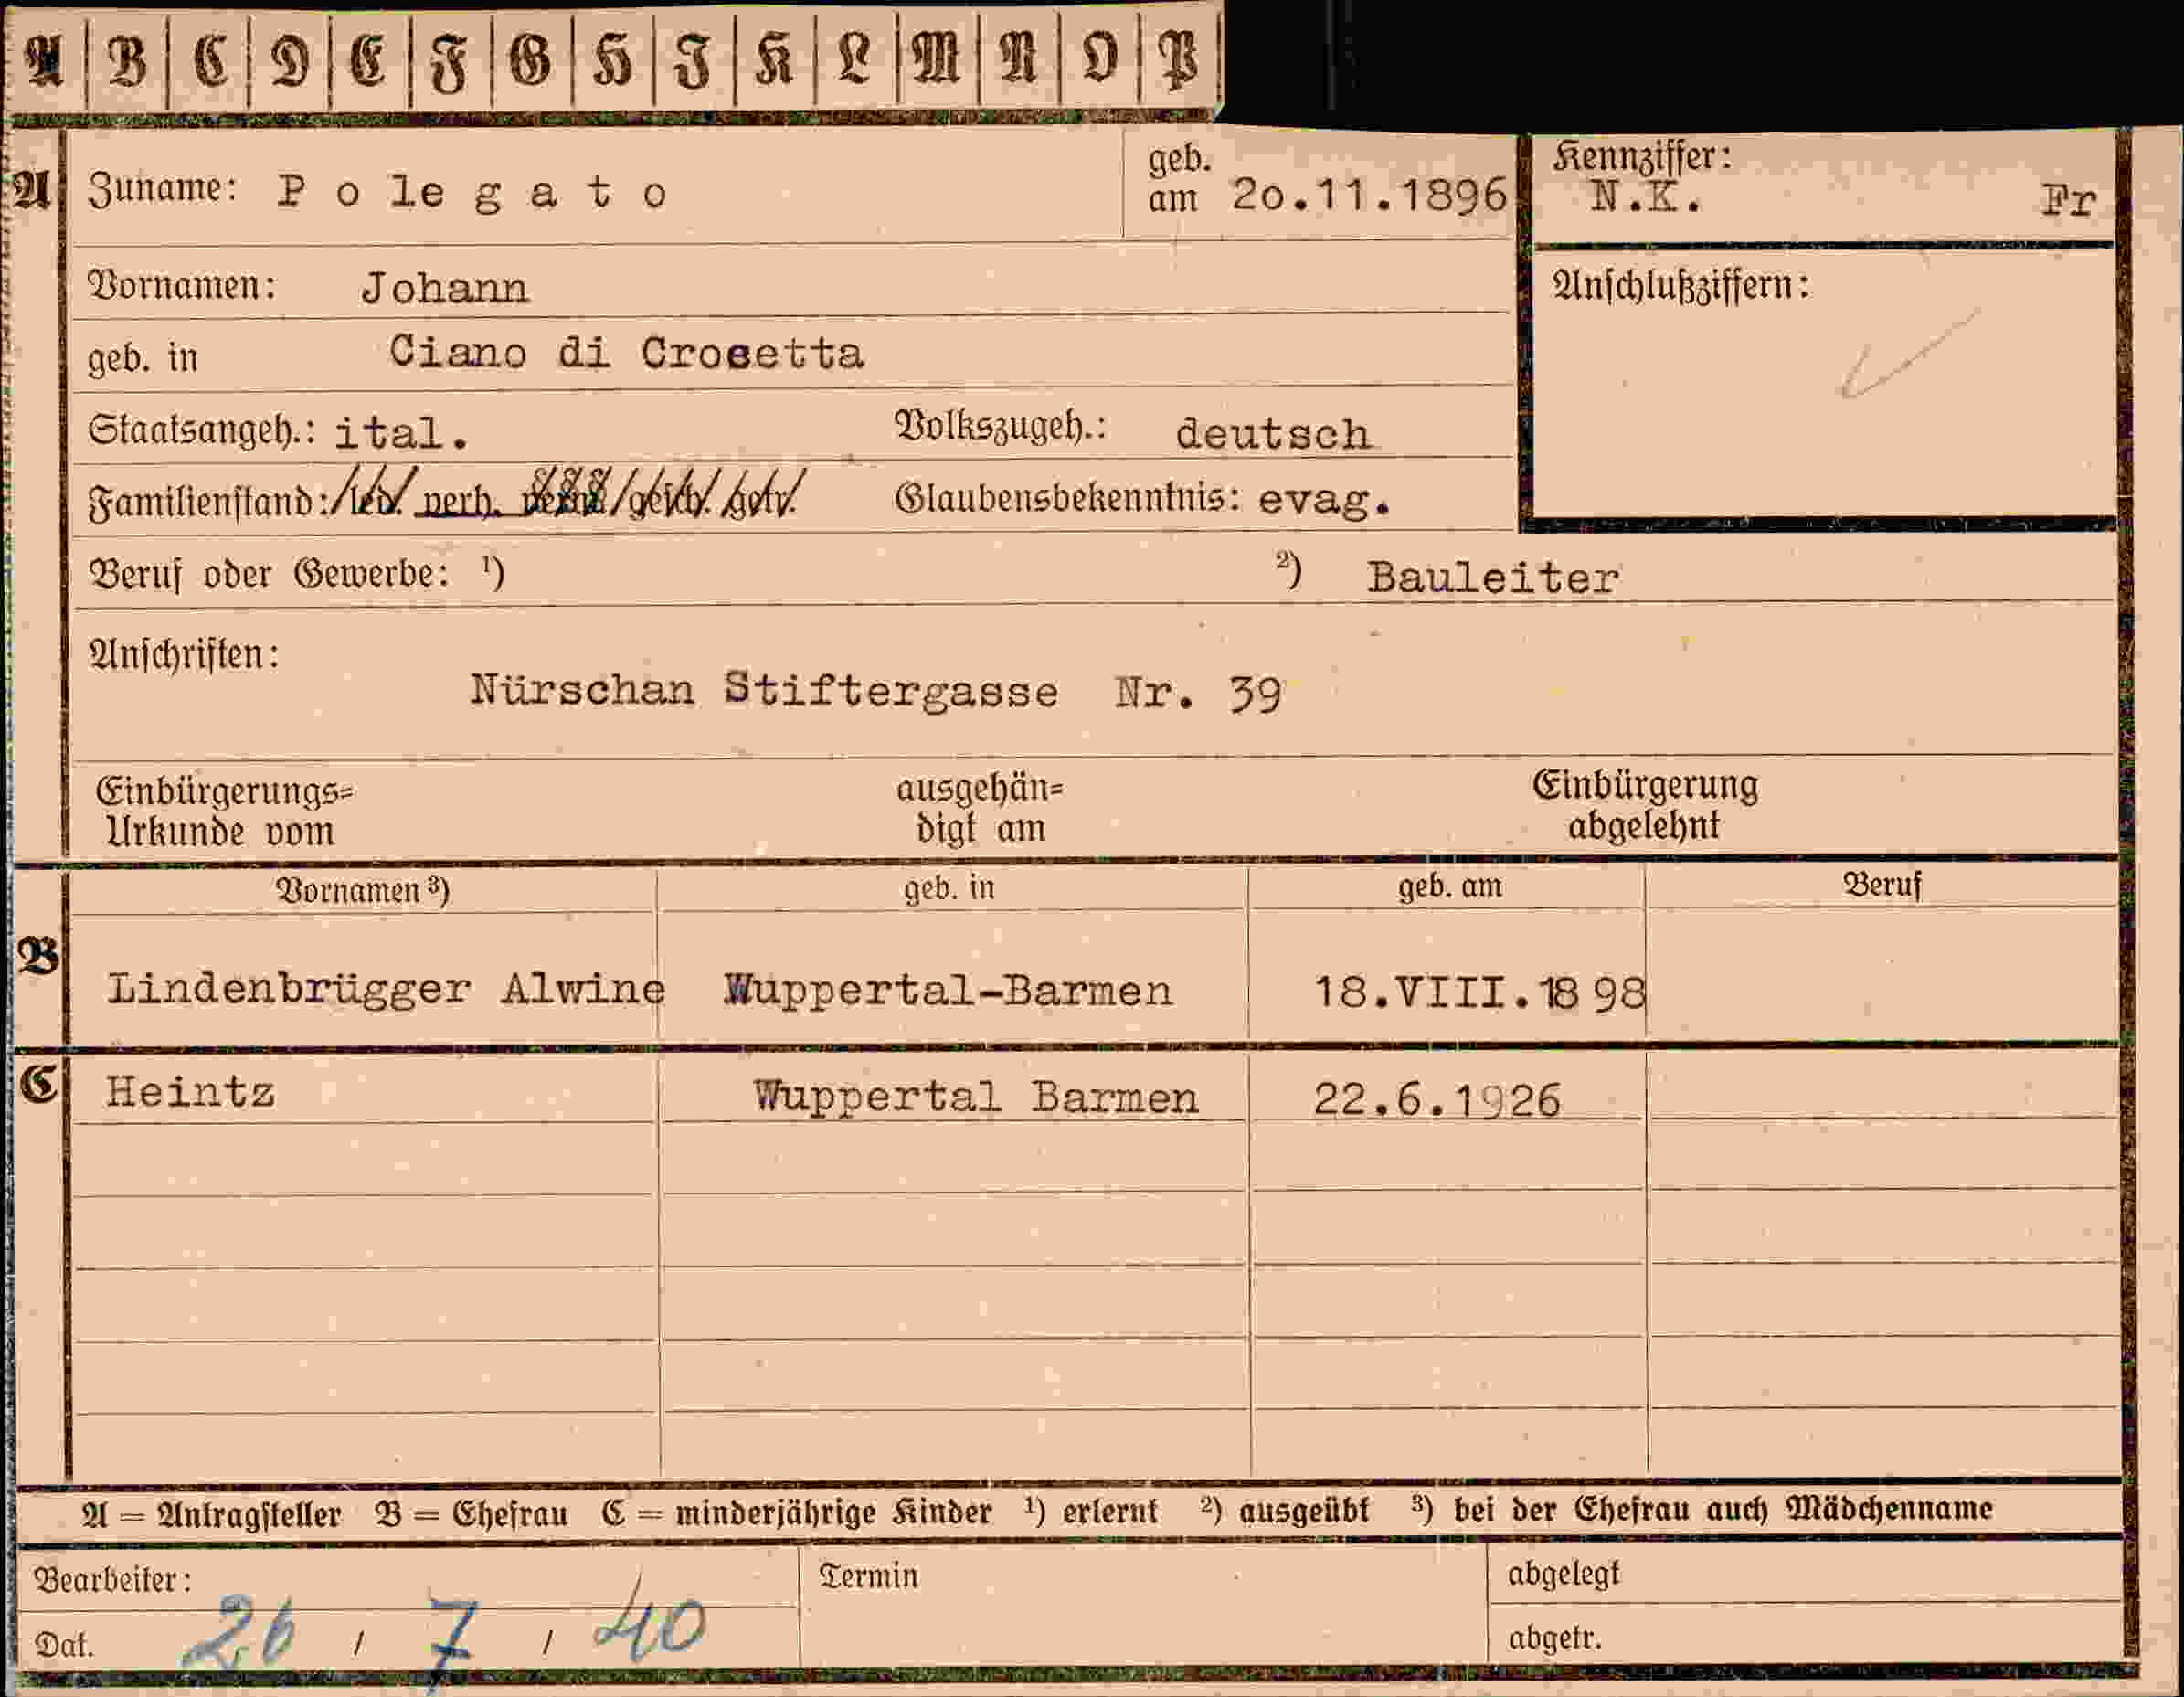 A B C D E F G H I K L M N O P
A Zuname: Polegato geb. am 20.11.1896 Kennziffer: N.K. Fr
Vornamen: Johann Anschlußziffern:
geb. in Ciano di Crosetta
Staatsangeh.: ital. Volkszugeh.: deutsch
Familienstand: led. verh. verw. gesch. getr. Glaubensbekenntnis: evag.
Beruf oder Gewerbe: ¹) ²) Bauleiter
Anschriften:
Nürschan Stiftergasse Nr. 39
Einbürgerungs= ausgehän= Einbürgerung
Urkunde vom digt am abgelehnt
Vornamen ³) geb. in geb. am Beruf
B Lindenbrügger Alwine Wuppertal-Barmen 18.VIII.1898
C Heintz Wuppertal Barmen 22.6.1926
A = Antragsteller B = Ehefrau C = minderjährige Kinder ¹) erlernt ²) ausgeübt ³) bei der Ehefrau auch Mädchenname
Bearbeiter: Termin abgelegt
Dat. 26 / 7 / 40 abgetr.